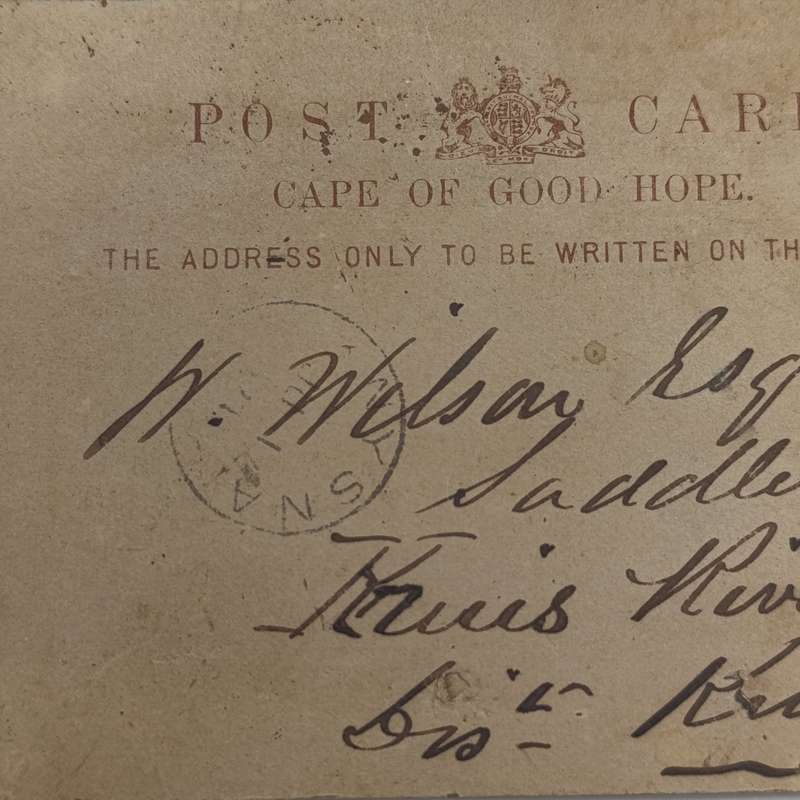 POST CAR
CAPE OF GOOD HOPE.
THE ADDRESS ONLY TO BE WRITTEN ON TH
W. Wilson Esq
Saddle
Kruis Riv
Dist